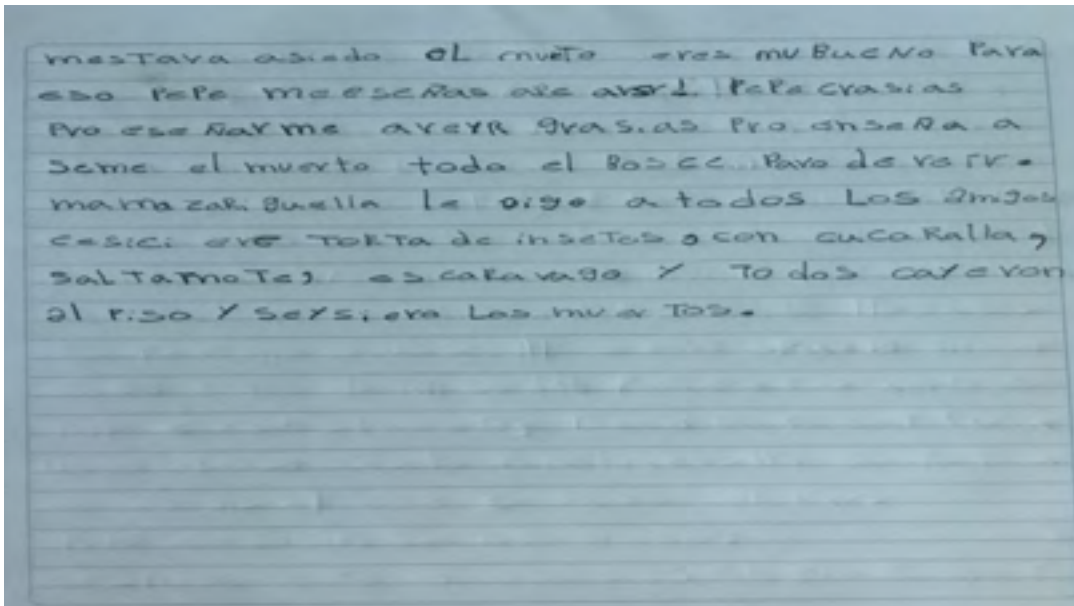 mestava asiedo el mueto eres mu Bueno Para
eso PePe me eseñas PePe crasias
Pro eseñarme grasias Pro enseña a
seme el muerto todo el Bosce
mama zariguella le digo a todos Los amigos
TORTA de insetos, con cucaRalla,
salTamoTe, escaravago y Todos cayeron
al Piso y Los mueTos.